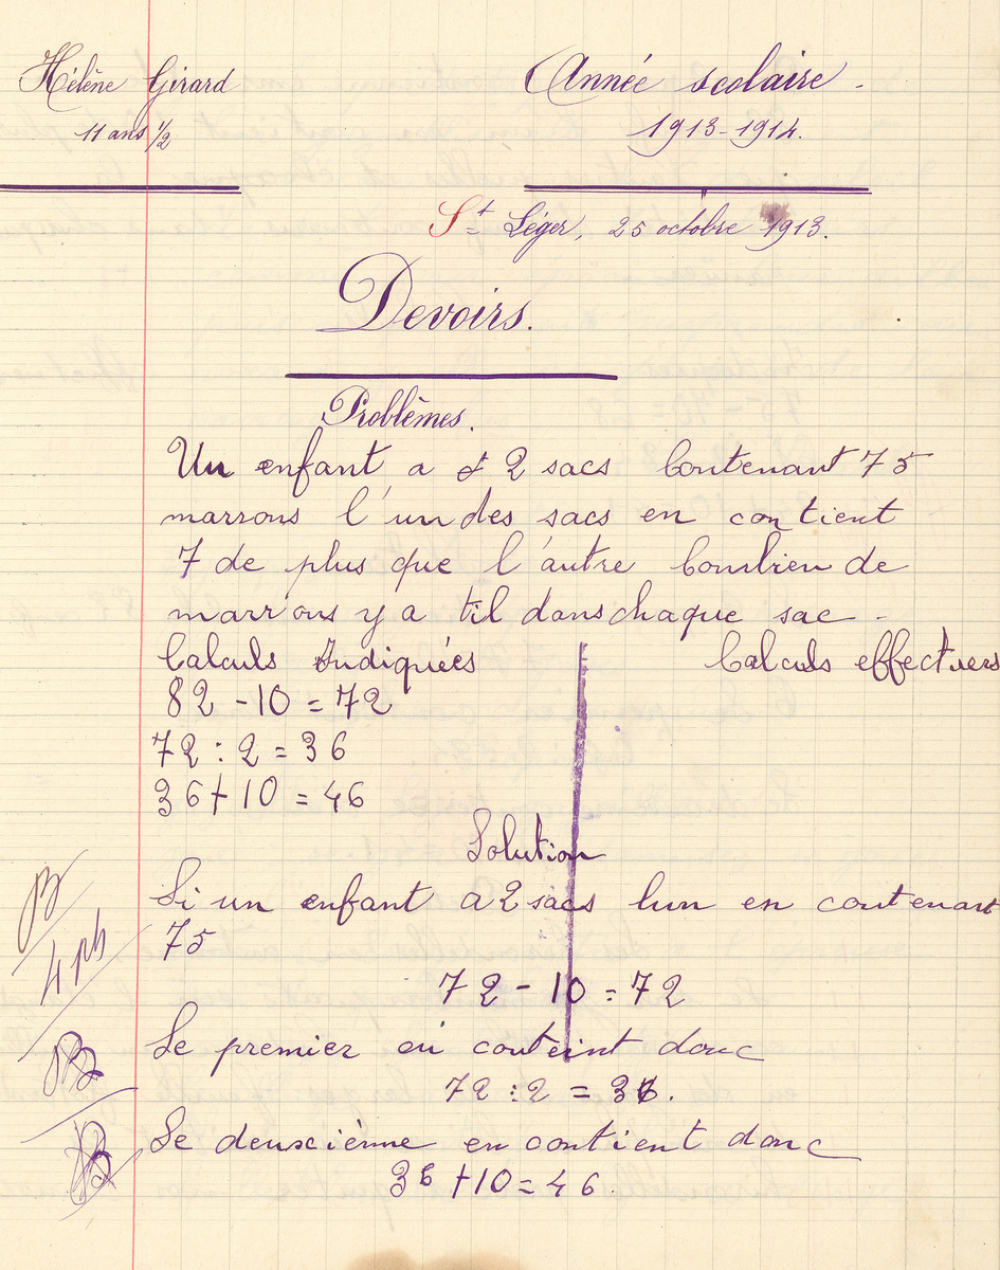 Hélène Girard
Année scolaire.
11 ans 1/2
1913-1914.
St Léger, 25 octobre 1913.
Devoirs.
Problèmes.
Un enfant a 2 sacs contenant 75
marrons l'un des sacs en contient
7 de plus que l'autre Combien de
marrons y a til dans chaque sac.
Calculs Indiquées
Calculs effectuers
82 - 10 = 72
72 : 2 = 36
36 + 10 = 46
Solution
Si un enfant a 2 sacs lun en contenant
75
72 - 10 = 72
Le premier en conteint donc
72 : 2 = 36.
Le deuxcième en contient donc
36 + 10 = 46.